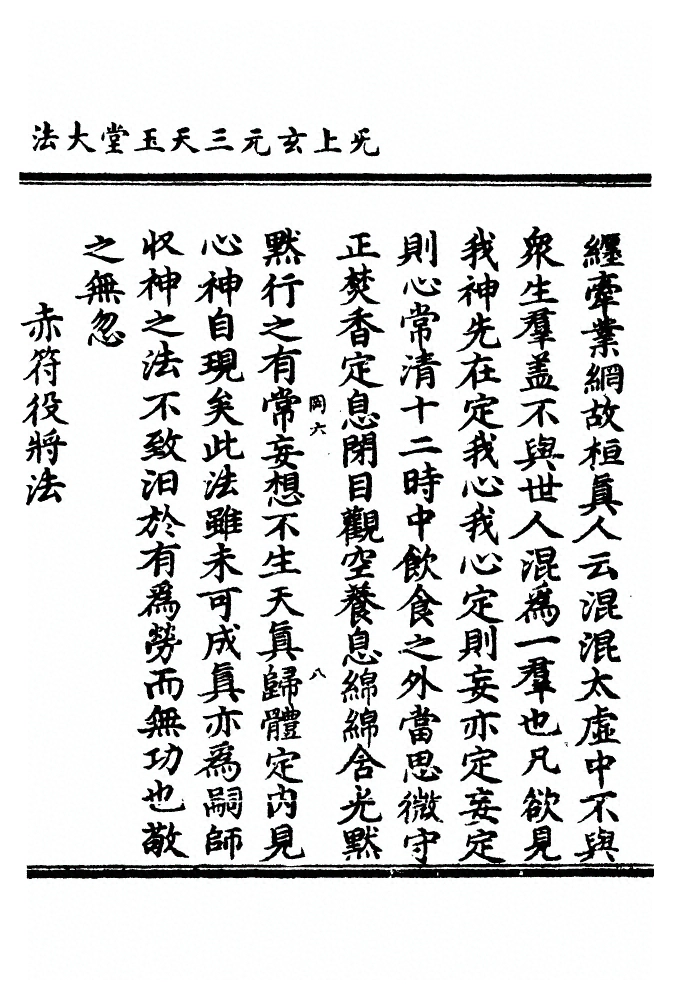 无上玄元三天玉堂大法
纒牽業網故桓眞人云混混太虛中不與
衆生羣盖不與世人混爲一羣也凡欲見
我神先在定我心我心定則妄亦定妄定
則心常清十二時中飲食之外當思微守
正焚香定息閉目觀空養息綿綿含光黙
岡六 八
黙行之有常妄想不生天眞歸體定內見
心神自現矣此法雖未可成眞亦爲嗣師
収神之法不致汩於有爲勞而無功也敬
之無忽
赤符役將法